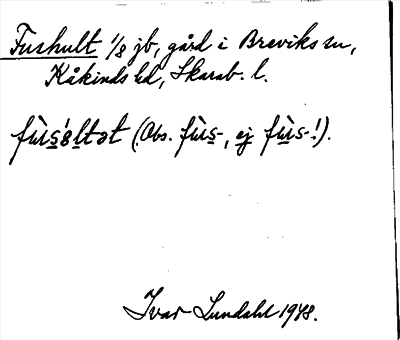 Fushult 1/8 jb, gård i Breviks sn,
Kåkinds hd, Skarab. l.
fùs̲ɞl̲tət (Obs. fùs̲-, ej fùs-!).
Ivar Lundahl 1948.